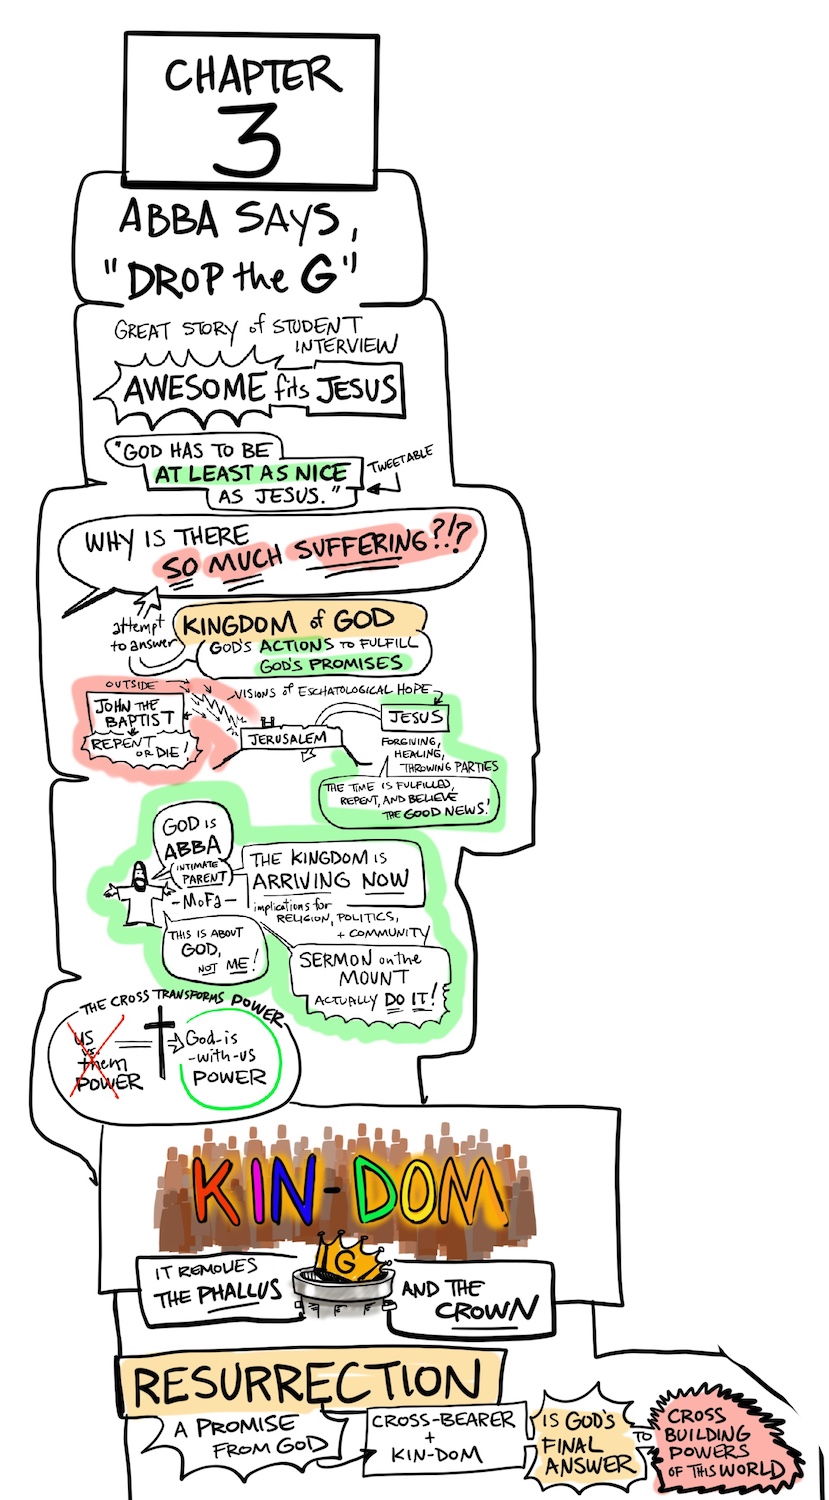 CHAPTER
3
ABBA SAYS,
"DROP the G"
GREAT STORY of STUDENT
INTERVIEW
AWESOME fits JESUS
"GOD HAS TO BE
AT LEAST AS NICE
AS JESUS."
TWEETABLE
WHY IS THERE
SO MUCH SUFFERING?!?
attempt
to answer
KINGDOM of GOD
GOD'S ACTIONS TO FULFILL
GOD'S PROMISES
OUTSIDE
VISIONS of ESCHATOLOGICAL HOPE
JOHN THE
BAPTIST
REPENT
OR DIE!
JERUSALEM
JESUS
FORGIVING,
HEALING,
THROWING PARTIES
THE TIME IS FULFILLED,
REPENT, AND BELIEVE
THE GOOD NEWS!
GOD IS
ABBA
INTIMATE
PARENT
-MoFa-
THIS IS ABOUT
GOD,
NOT ME!
THE KINGDOM IS
ARRIVING NOW
implications for
RELIGION, POLITICS,
+ COMMUNITY
SERMON on the
MOUNT
ACTUALLY DO IT!
THE CROSS TRANSFORMS POWER
US
vs.
them
POWER
God-is
-with-us
POWER
KIN-DOM
G
IT REMOVES
THE PHALLUS
AND THE
CROWN
RESURRECTION
A PROMISE
FROM GOD
CROSS-BEARER
+
KIN-DOM
IS GOD'S
FINAL
ANSWER
TO
CROSS
BUILDING
POWERS
OF THIS WORLD